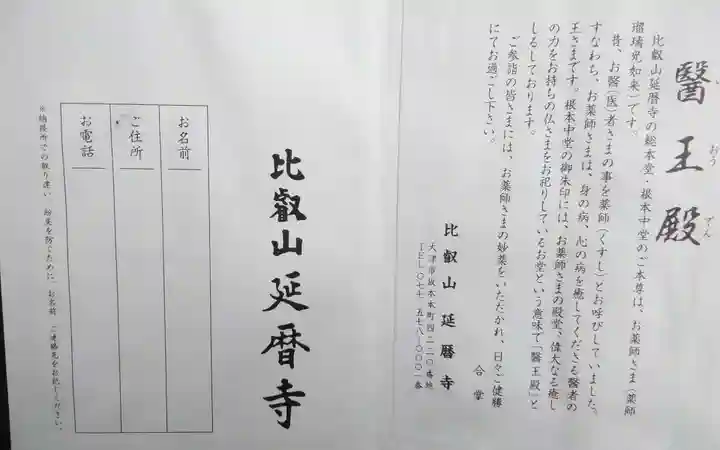 醫王殿
いおうでん
比叡山延暦寺の総本堂・根本中堂のご本尊は、お薬師さま(薬師
瑠璃光如来)です。
昔、お醫(医)者さまの事を薬師(くすし)とお呼びしていました。
すなわち、お薬師さまは、身の病、心の病を癒してくださる醫者の
王さまです。根本中堂の御朱印には、お薬師さまの殿堂、偉大なる癒し
の力をお持ちの仏さまをお祀りしているお堂という意味で「醫王殿」と
しるしております。
ご参詣の皆さまには、お薬師さまの妙薬をいただかれ、日々ご健勝
にてお過ごし下さい。
合掌
比叡山延暦寺
大津市坂本本町四二二〇番地
TEL〇七七-五七八-〇〇〇一番
比叡山延暦寺
お名前
ご住所
お電話
※納経所での取り違い、紛失を防ぐために、お名前、ご連絡先をお記しください。